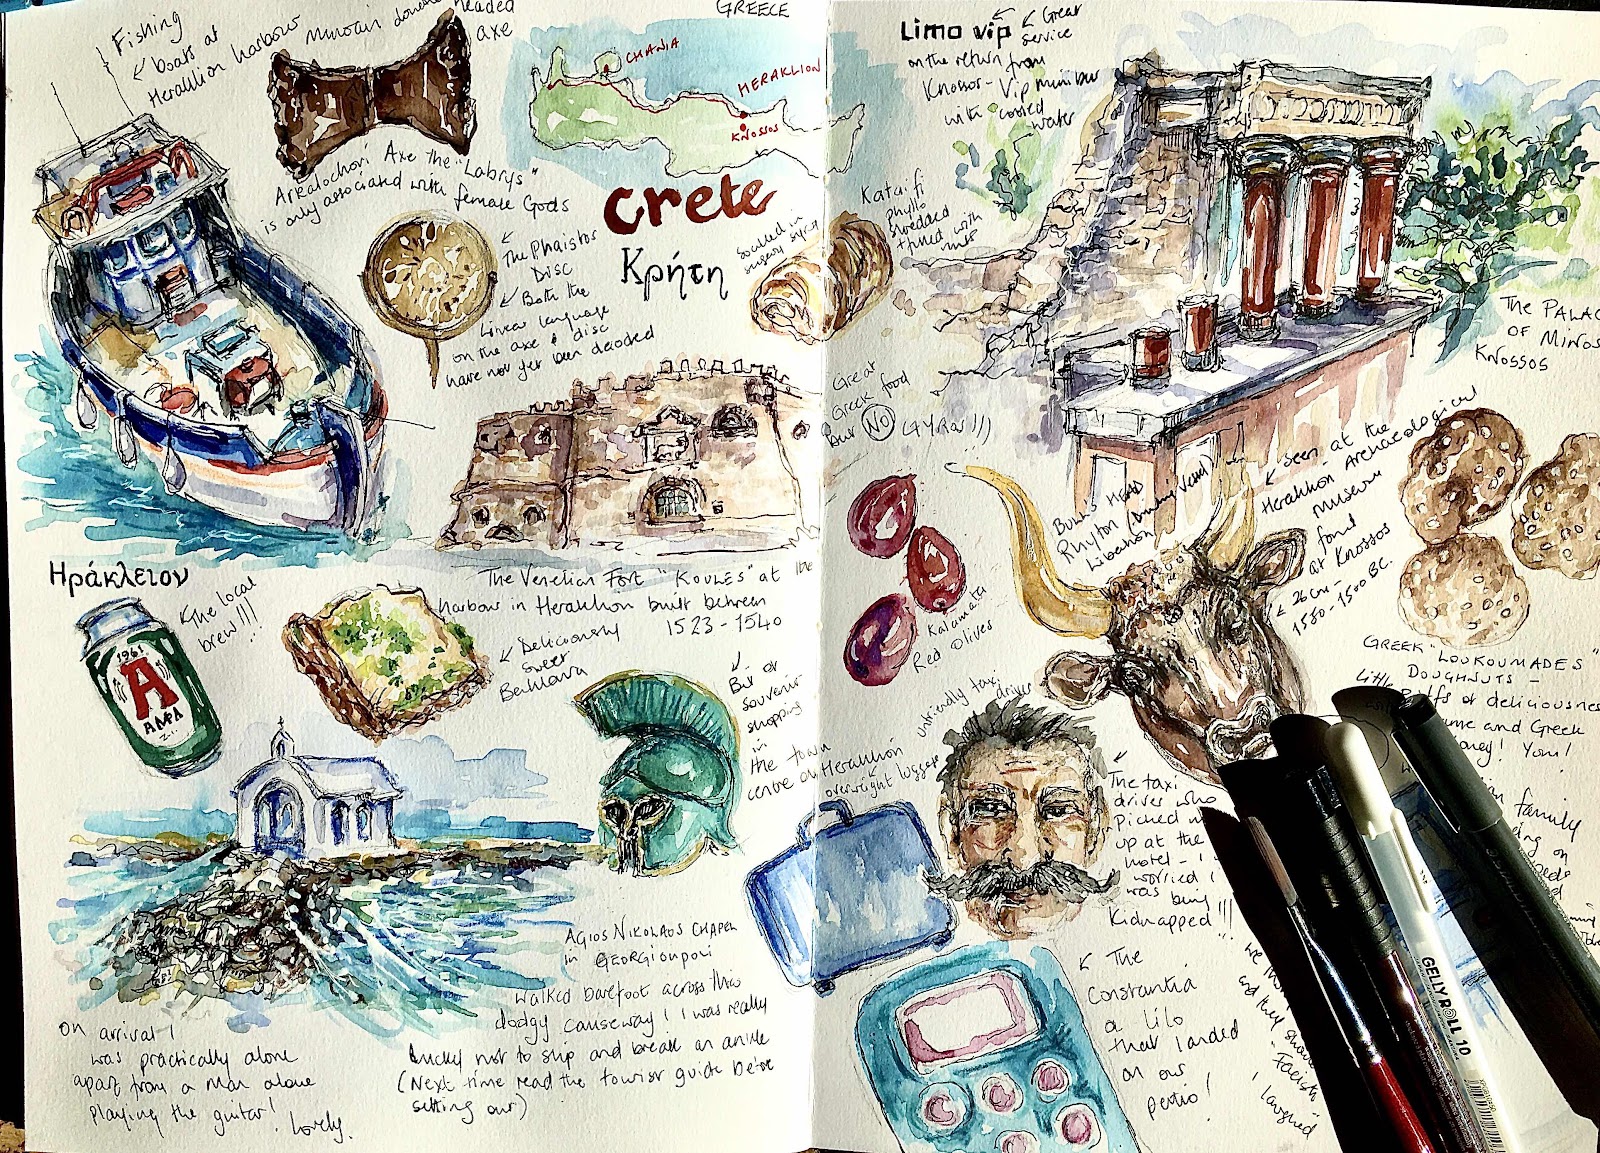 Fishing
boats at
Heraklion harbour
Minoan double headed
axe
GREECE
CHANIA
HERAKLION
KNOSSOS
Arkalochori Axe the "Labrys"
is only associated with female Gods
crete
Κρήτη
The Phaistos
Disc
Both the
Linear language
on the axe & disc
have not yet been decoded
soaked in
sugary syrup
Kataifi
phyllo
shredded
+ filled with
nuts
Limo vip
Great
service
on the return from
Knossos - Vip minibus
with cooled
water
THE PALAC
OF MINOS
KNOSSOS
Great
Greek food
but NO GYROS!!!
Ηράκλειον
The local
brew!!!
1961
A
Deliciously
sweet
Baklava
The Venetian Fort "KOULES" at the
harbour in Heraklion built between
1523-1540
Kalamata
Red Olives
BULLS HEAD
Rhyton (Drinking Vessel)
Libation
seen at the
Heraklion Archaeological
Museum
found
at Knossos
26cm -
1580-1500 BC.
GREEK "LOUKOUMADES"
DOUGHNUTS -
Little
Puffs of deliciousness
and Greek
Honey! Yom!
family
on
- or
souvenir
shopping
in
the town
centre
Heraklion
unfriendly taxi
drivers
overweight luggage
The taxi
driver who
Picked
up at the
hotel - I
worried I
was being
Kidnapped!!!
AGIOS NIKOLAOS CHAPEL
in GEORGIOUPOLI
walked barefoot across this
dodgy causeway! I was really
lucky not to slip and break an ankle
(Next time read the tourist guide before
setting out)
On arrival I
was practically alone
apart from a man alone
playing the guitar! Lovely.
The
Constantia
a lilo
that landed
on our
patio!
and they
I laughed
GELLY ROLL 10